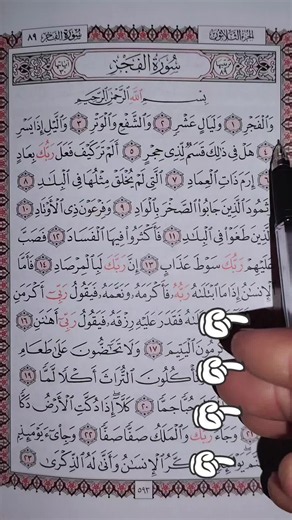 الجزء الثلاثون
سورة الفجر ٨٩
سُورَةُ الفَجْرِ
بِسْمِ اللَّهِ الرَّحْمَٰنِ الرَّحِيمِ
وَالْفَجْرِ ١ وَلَيَالٍ عَشْرٍ ٢ وَالشَّفْعِ وَالْوَتْرِ ٣ وَالَّيْلِ إِذَا يَسْرِ
٤ هَلْ فِي ذَٰلِكَ قَسَمٌ لِّذِي حِجْرٍ ٥ أَلَمْ تَرَ كَيْفَ فَعَلَ رَبُّكَ بِعَادٍ
إِرَمَ ذَاتِ الْعِمَادِ ٧ الَّتِي لَمْ يُخْلَقْ مِثْلُهَا فِي الْبِلَٰدِ ٨
وَثَمُودَ الَّذِينَ جَابُوا الصَّخْرَ بِالْوَادِ ٩ وَفِرْعَوْنَ ذِي الْأَوْتَادِ ١٠
الَّذِينَ طَغَوْا فِي الْبِلَٰدِ ١١ فَأَكْثَرُوا فِيهَا الْفَسَادَ ١٢ فَصَبَّ
عَلَيْهِمْ رَبُّكَ سَوْطَ عَذَابٍ ١٣ إِنَّ رَبَّكَ لَبِالْمِرْصَادِ ١٤ فَأَمَّا
الْإِنسَٰنُ إِذَا مَا ابْتَلَىٰهُ رَبُّهُ فَأَكْرَمَهُ وَنَعَّمَهُ فَيَقُولُ رَبِّي أَكْرَمَنِ
فَقَدَرَ عَلَيْهِ رِزْقَهُ فَيَقُولُ رَبِّي أَهَٰنَنِ ١٦
الْيَتِيمَ ١٧ وَلَا تَحَٰضُّونَ عَلَىٰ طَعَامِ
التُّرَاثَ أَكْلًا لَّمًّا ١٩
جَمًّا ٢٠ كَلَّا إِذَا دُكَّتِ الْأَرْضُ دَكًّا
وَجَاءَ رَبُّكَ وَالْمَلَكُ صَفًّا صَفًّا ٢٢ وَجِايءَ يَوْمَئِذٍ
الْإِنسَٰنُ وَأَنَّىٰ لَهُ الذِّكْرَىٰ ٢٣
٥٩٣